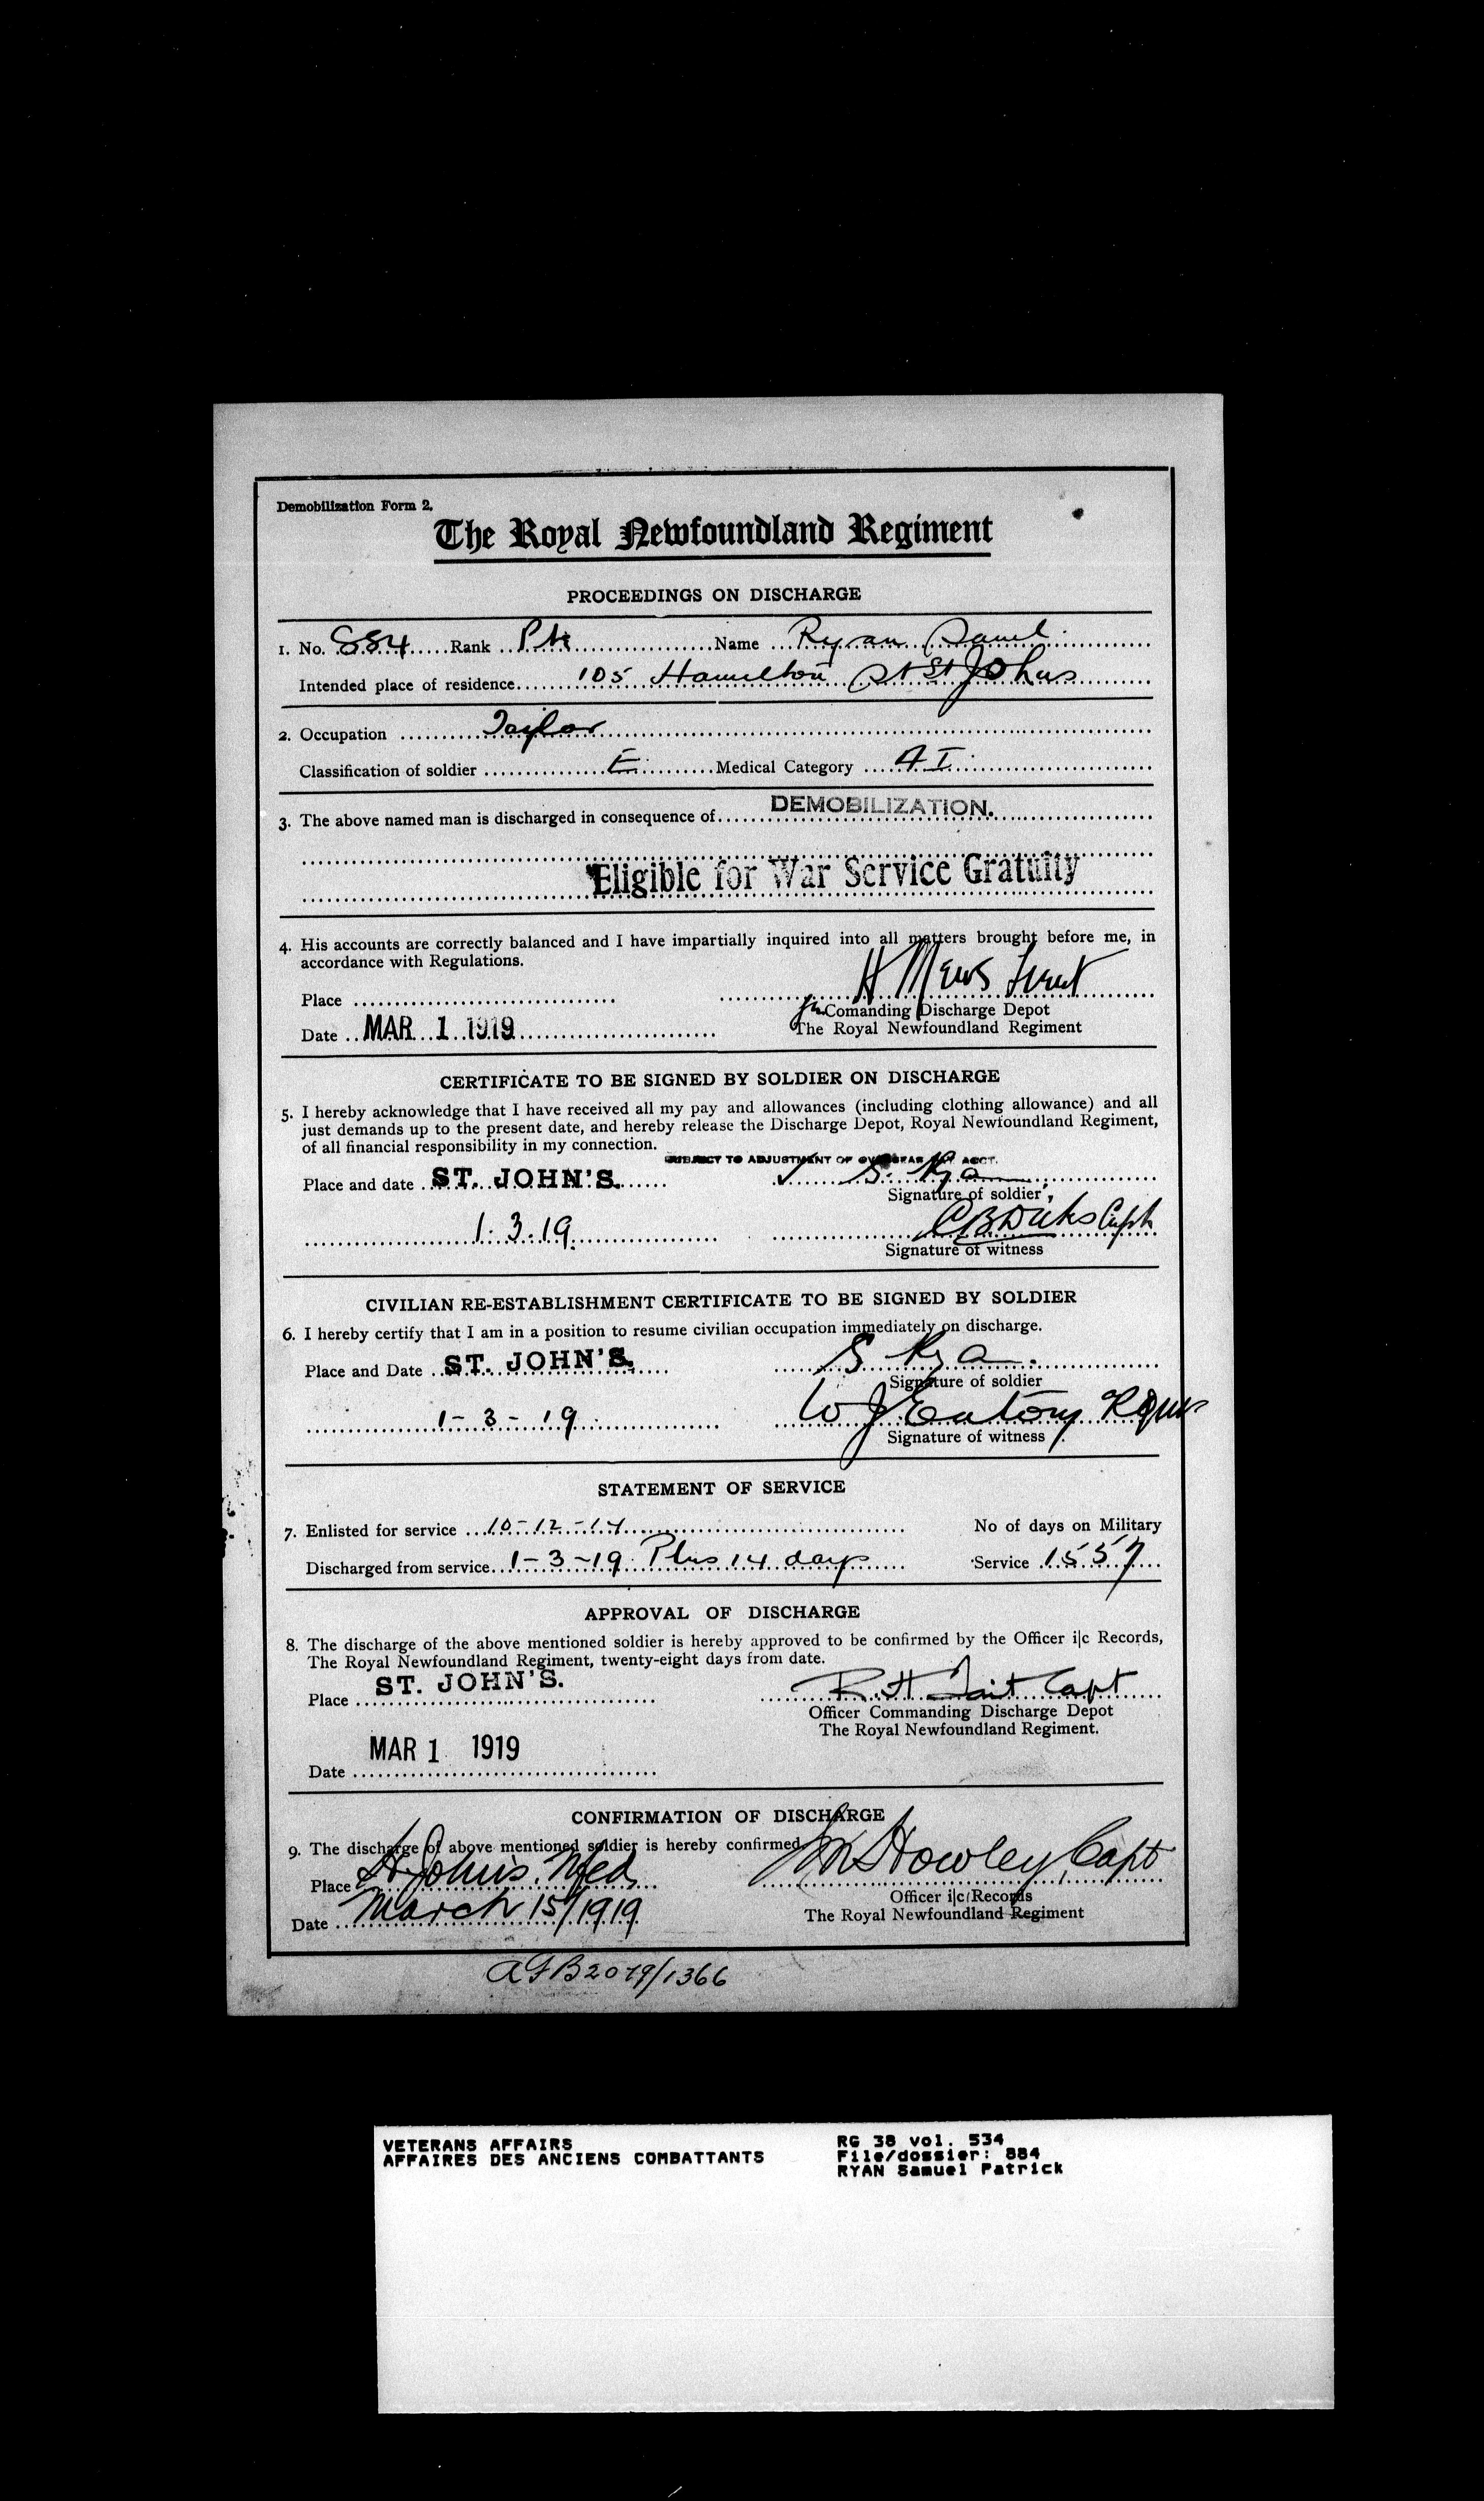 Demobilization Form 2.
The Royal Newfoundland Regiment
PROCEEDINGS ON DISCHARGE
1. No. 884 Rank Pte Name Ryan Saml.
Intended place of residence 105 Hamilton St St Johns
2. Occupation Taylor
Classification of soldier E Medical Category A I
3. The above named man is discharged in consequence of DEMOBILIZATION.
Eligible for War Service Gratuity
4. His accounts are correctly balanced and I have impartially inquired into all matters brought before me, in
accordance with Regulations.
H Mews Lieut
Place
for Comanding Discharge Depot
Date MAR 1 1919 The Royal Newfoundland Regiment
CERTIFICATE TO BE SIGNED BY SOLDIER ON DISCHARGE
5. I hereby acknowledge that I have received all my pay and allowances (including clothing allowance) and all
just demands up to the present date, and hereby release the Discharge Depot, Royal Newfoundland Regiment,
of all financial responsibility in my connection.
SUBJECT TO ADJUSTMENT OF OVERSEAS PAY ACCT.
Place and date ST. JOHN'S. S. Rya
Signature of soldier
1.3.19. C B Dicks Capt
Signature of witness
CIVILIAN RE-ESTABLISHMENT CERTIFICATE TO BE SIGNED BY SOLDIER
6. I hereby certify that I am in a position to resume civilian occupation immediately on discharge.
Place and Date ST. JOHN'S. S Rya
Signature of soldier
1-3-19 W J Eaton
Signature of witness
STATEMENT OF SERVICE
7. Enlisted for service 10-12-14 No of days on Military
Discharged from service 1-3-19 Plus 14 days Service 1557
APPROVAL OF DISCHARGE
8. The discharge of the above mentioned soldier is hereby approved to be confirmed by the Officer i|c Records,
The Royal Newfoundland Regiment, twenty-eight days from date.
Place ST. JOHN'S. R. H Tait Capt
Officer Commanding Discharge Depot
The Royal Newfoundland Regiment.
MAR 1 1919
Date
CONFIRMATION OF DISCHARGE
9. The discharge of above mentioned soldier is hereby confirmed
Place St John's. Nfld. Howley Capt
Officer i|c Records
Date March 15/1919 The Royal Newfoundland Regiment
AFB2079/1366
VETERANS AFFAIRS RG 38 vol. 534
AFFAIRES DES ANCIENS COMBATTANTS File/dossier: 884
RYAN Samuel Patrick